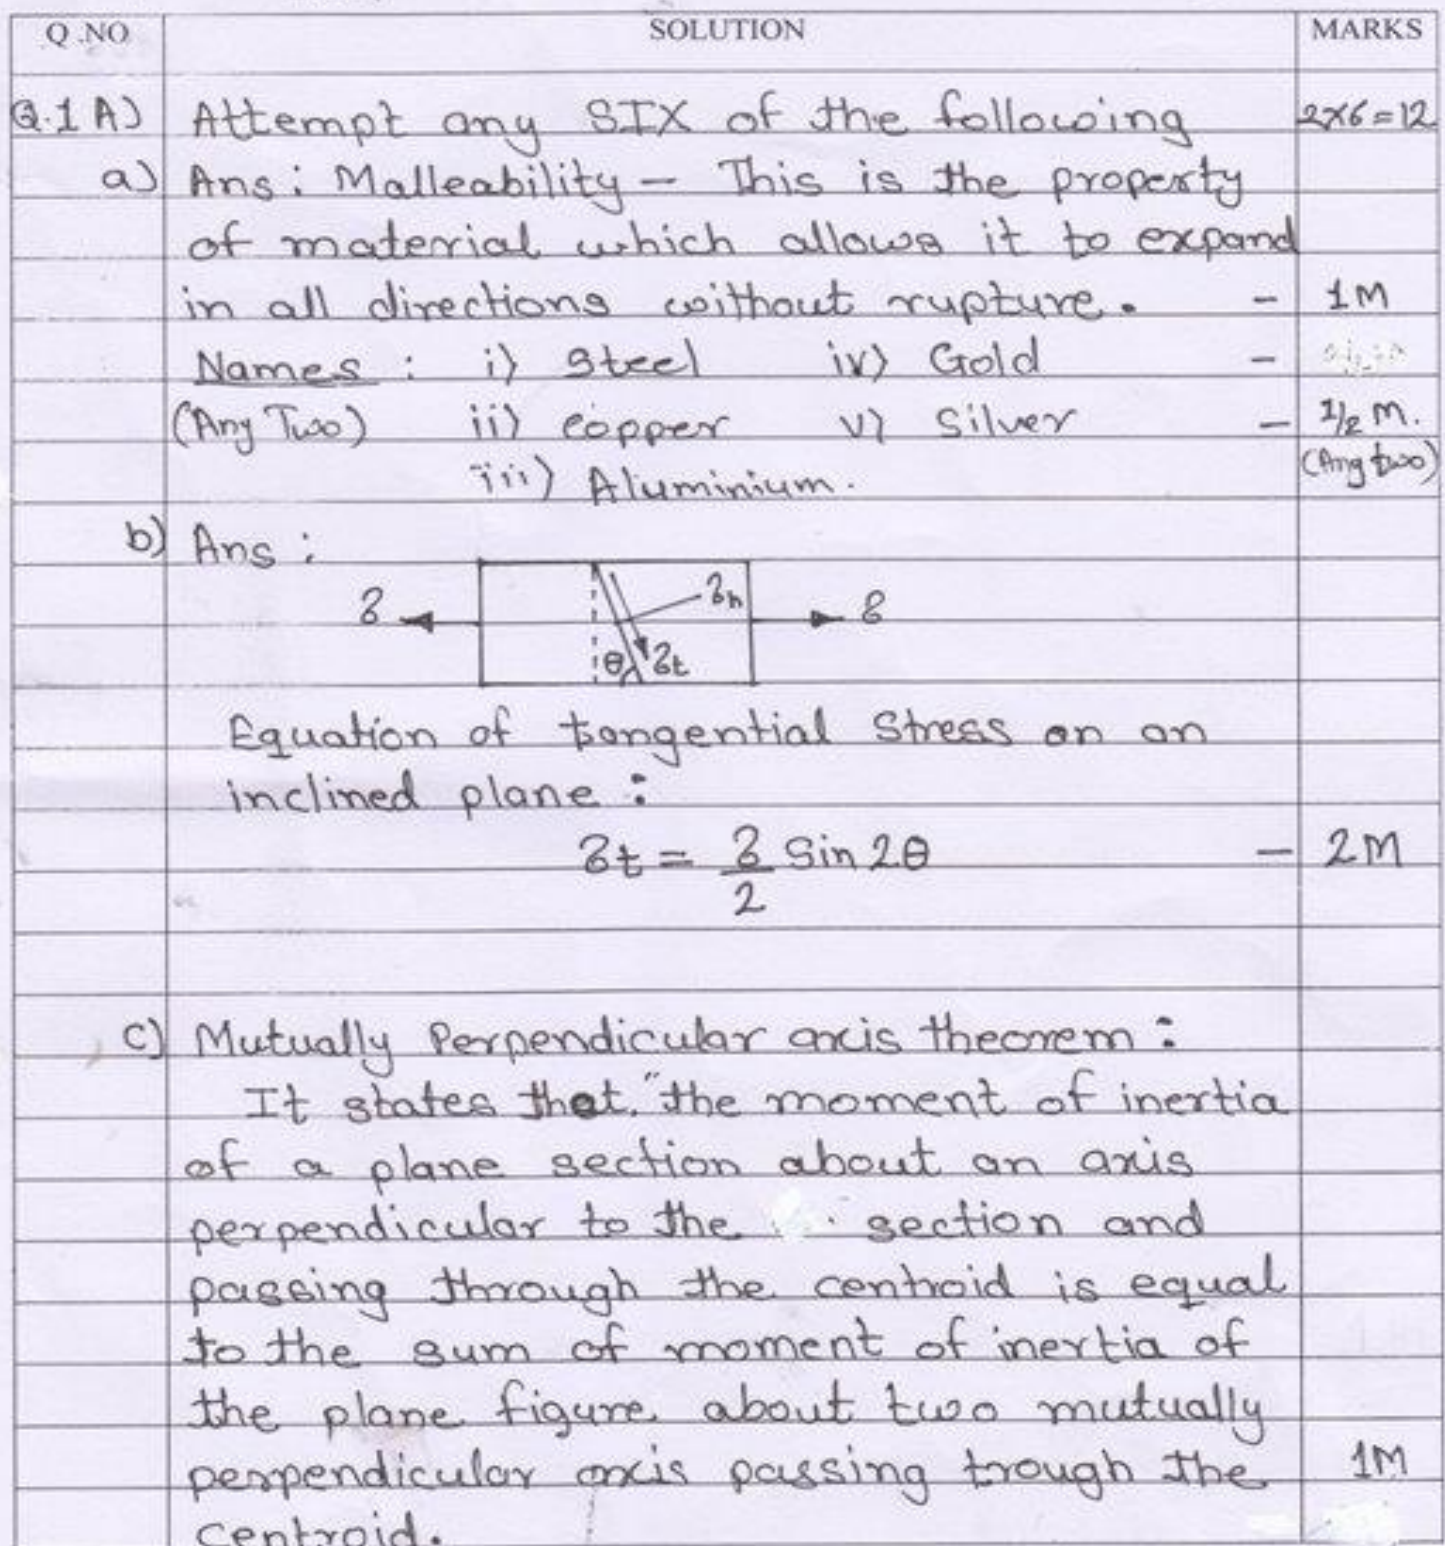 Q.NO SOLUTION MARKS
Q.1 A) Attempt any SIX of the following 2×6=12
a) Ans : Malleability – This is the property
of material which allows it to expand
in all directions without rupture. – 1M
Names : i) Steel iv) Gold –
(Any Two) ii) copper v) Silver – 1/2 M.
iii) Aluminium. (Any two)
b) Ans :
σ σn σ
θ σt
Equation of tangential stress on an
inclined plane :
σt = σ/2 Sin 2θ – 2M
c) Mutually Perpendicular axis theorem :
It states that. "the moment of inertia
of a plane section about an axis
perpendicular to the section and
passing through the centroid is equal
to the sum of moment of inertia of
the plane figure about two mutually
perpendicular axis passing trough the 1M
centroid.